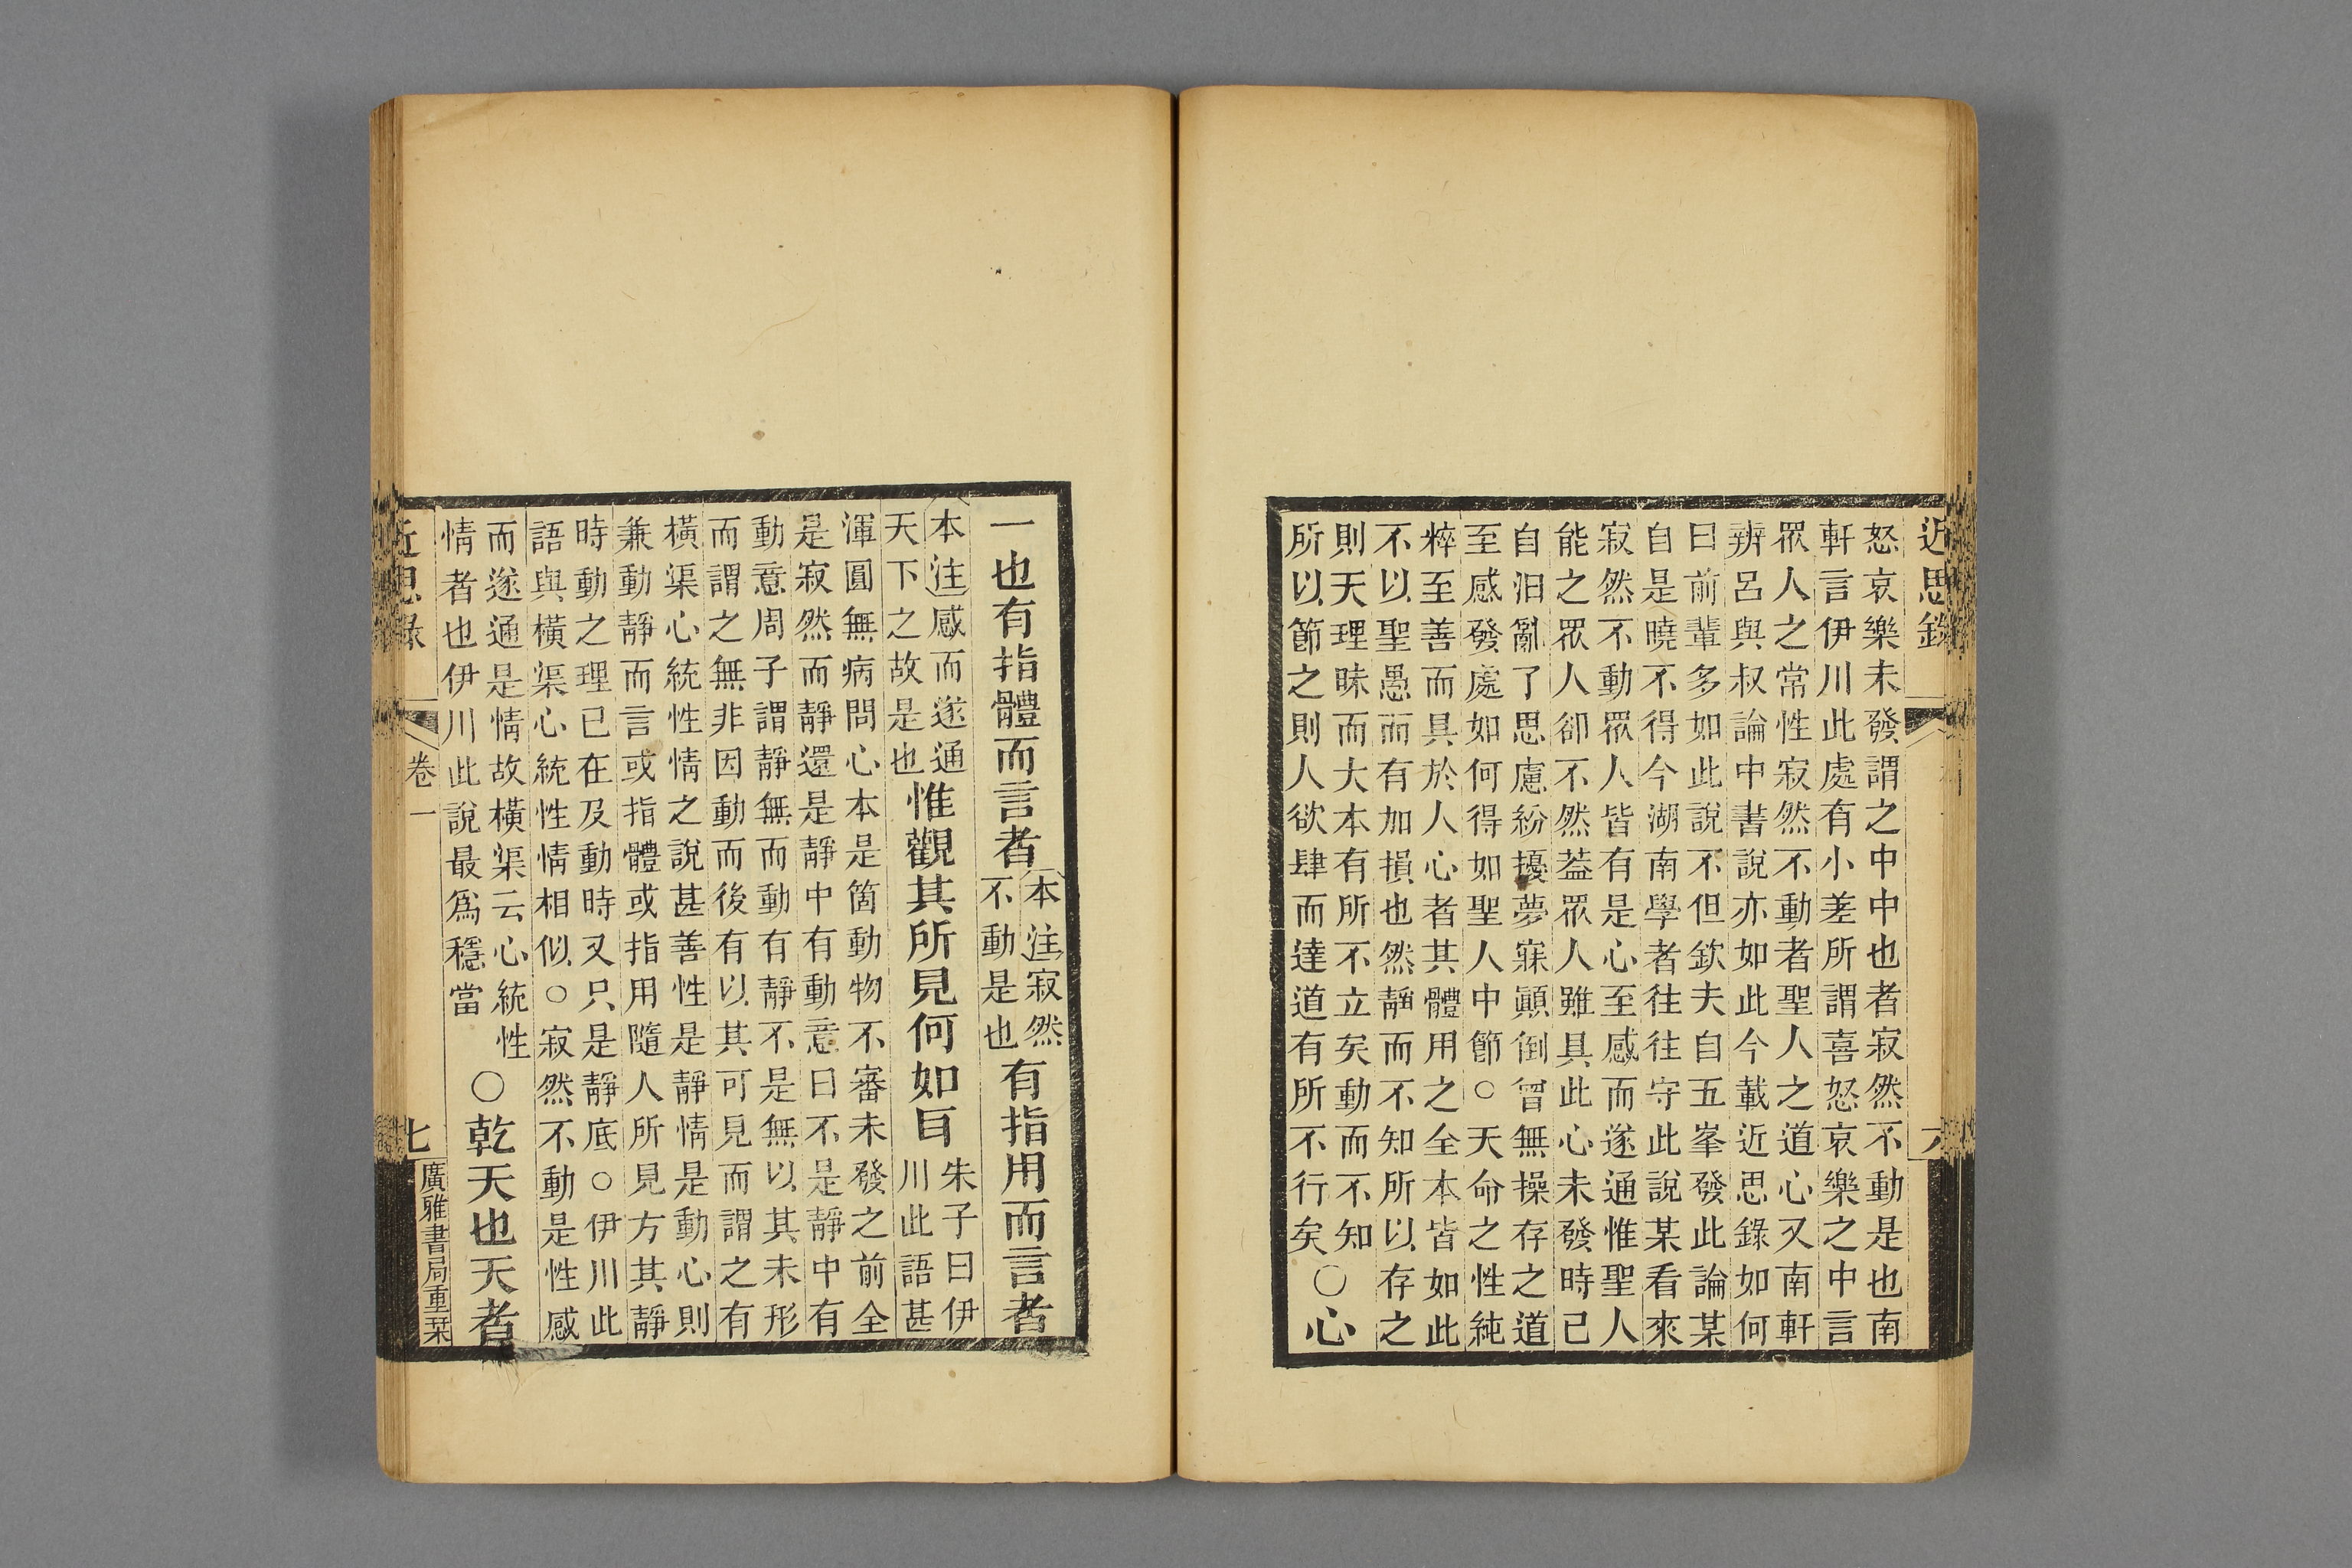 近思錄
六
怒哀樂未發謂之中中也者寂然不動是也南
軒言伊川此處有小差所謂喜怒哀樂之中言
眾人之常性寂然不動者聖人之道心又南軒
辨呂與叔論中書說亦如此今載近思錄如何
曰前輩多如此說不但欽夫自五峯發此論某
自是曉不得今湖南學者往往守此說某看來
寂然不動眾人皆有是心至感而遂通惟聖人
能之眾人卻不然葢眾人雖具此心未發時已
自汨亂了思慮紛擾夢寐顚倒曾無操存之道
至感發處如何得如聖人中節○天命之性純
粹至善而具於人心者其體用之全本皆如此
不以聖愚而有加損也然靜而不知所以存之
則天理昧而大本有所不立矣動而不知
所以節之則人欲肆而達道有所不行矣
○心
一也有指體而言者
本注寂然
不動是也
有指用而言者
本注感而遂通
天下之故是也
惟觀其所見何如耳
朱子曰伊
川此語甚
渾圓無病問心本是箇動物不審未發之前全
是寂然而靜還是靜中有動意曰不是靜中有
動意周子謂靜無而動有靜不是無以其未形
而謂之無非因動而後有以其可見而謂之有
橫渠心統性情之說甚善性是靜情是動心則
兼動靜而言或指體或指用隨人所見方其靜
時動之理已在及動時又只是靜底○伊川此
語與橫渠心統性情相似○寂然不動是性感
而遂通是情故橫渠云心統性
情者也伊川此說最爲穩當
○乾天也天者
近思錄
卷一
七
廣雅書局重栞